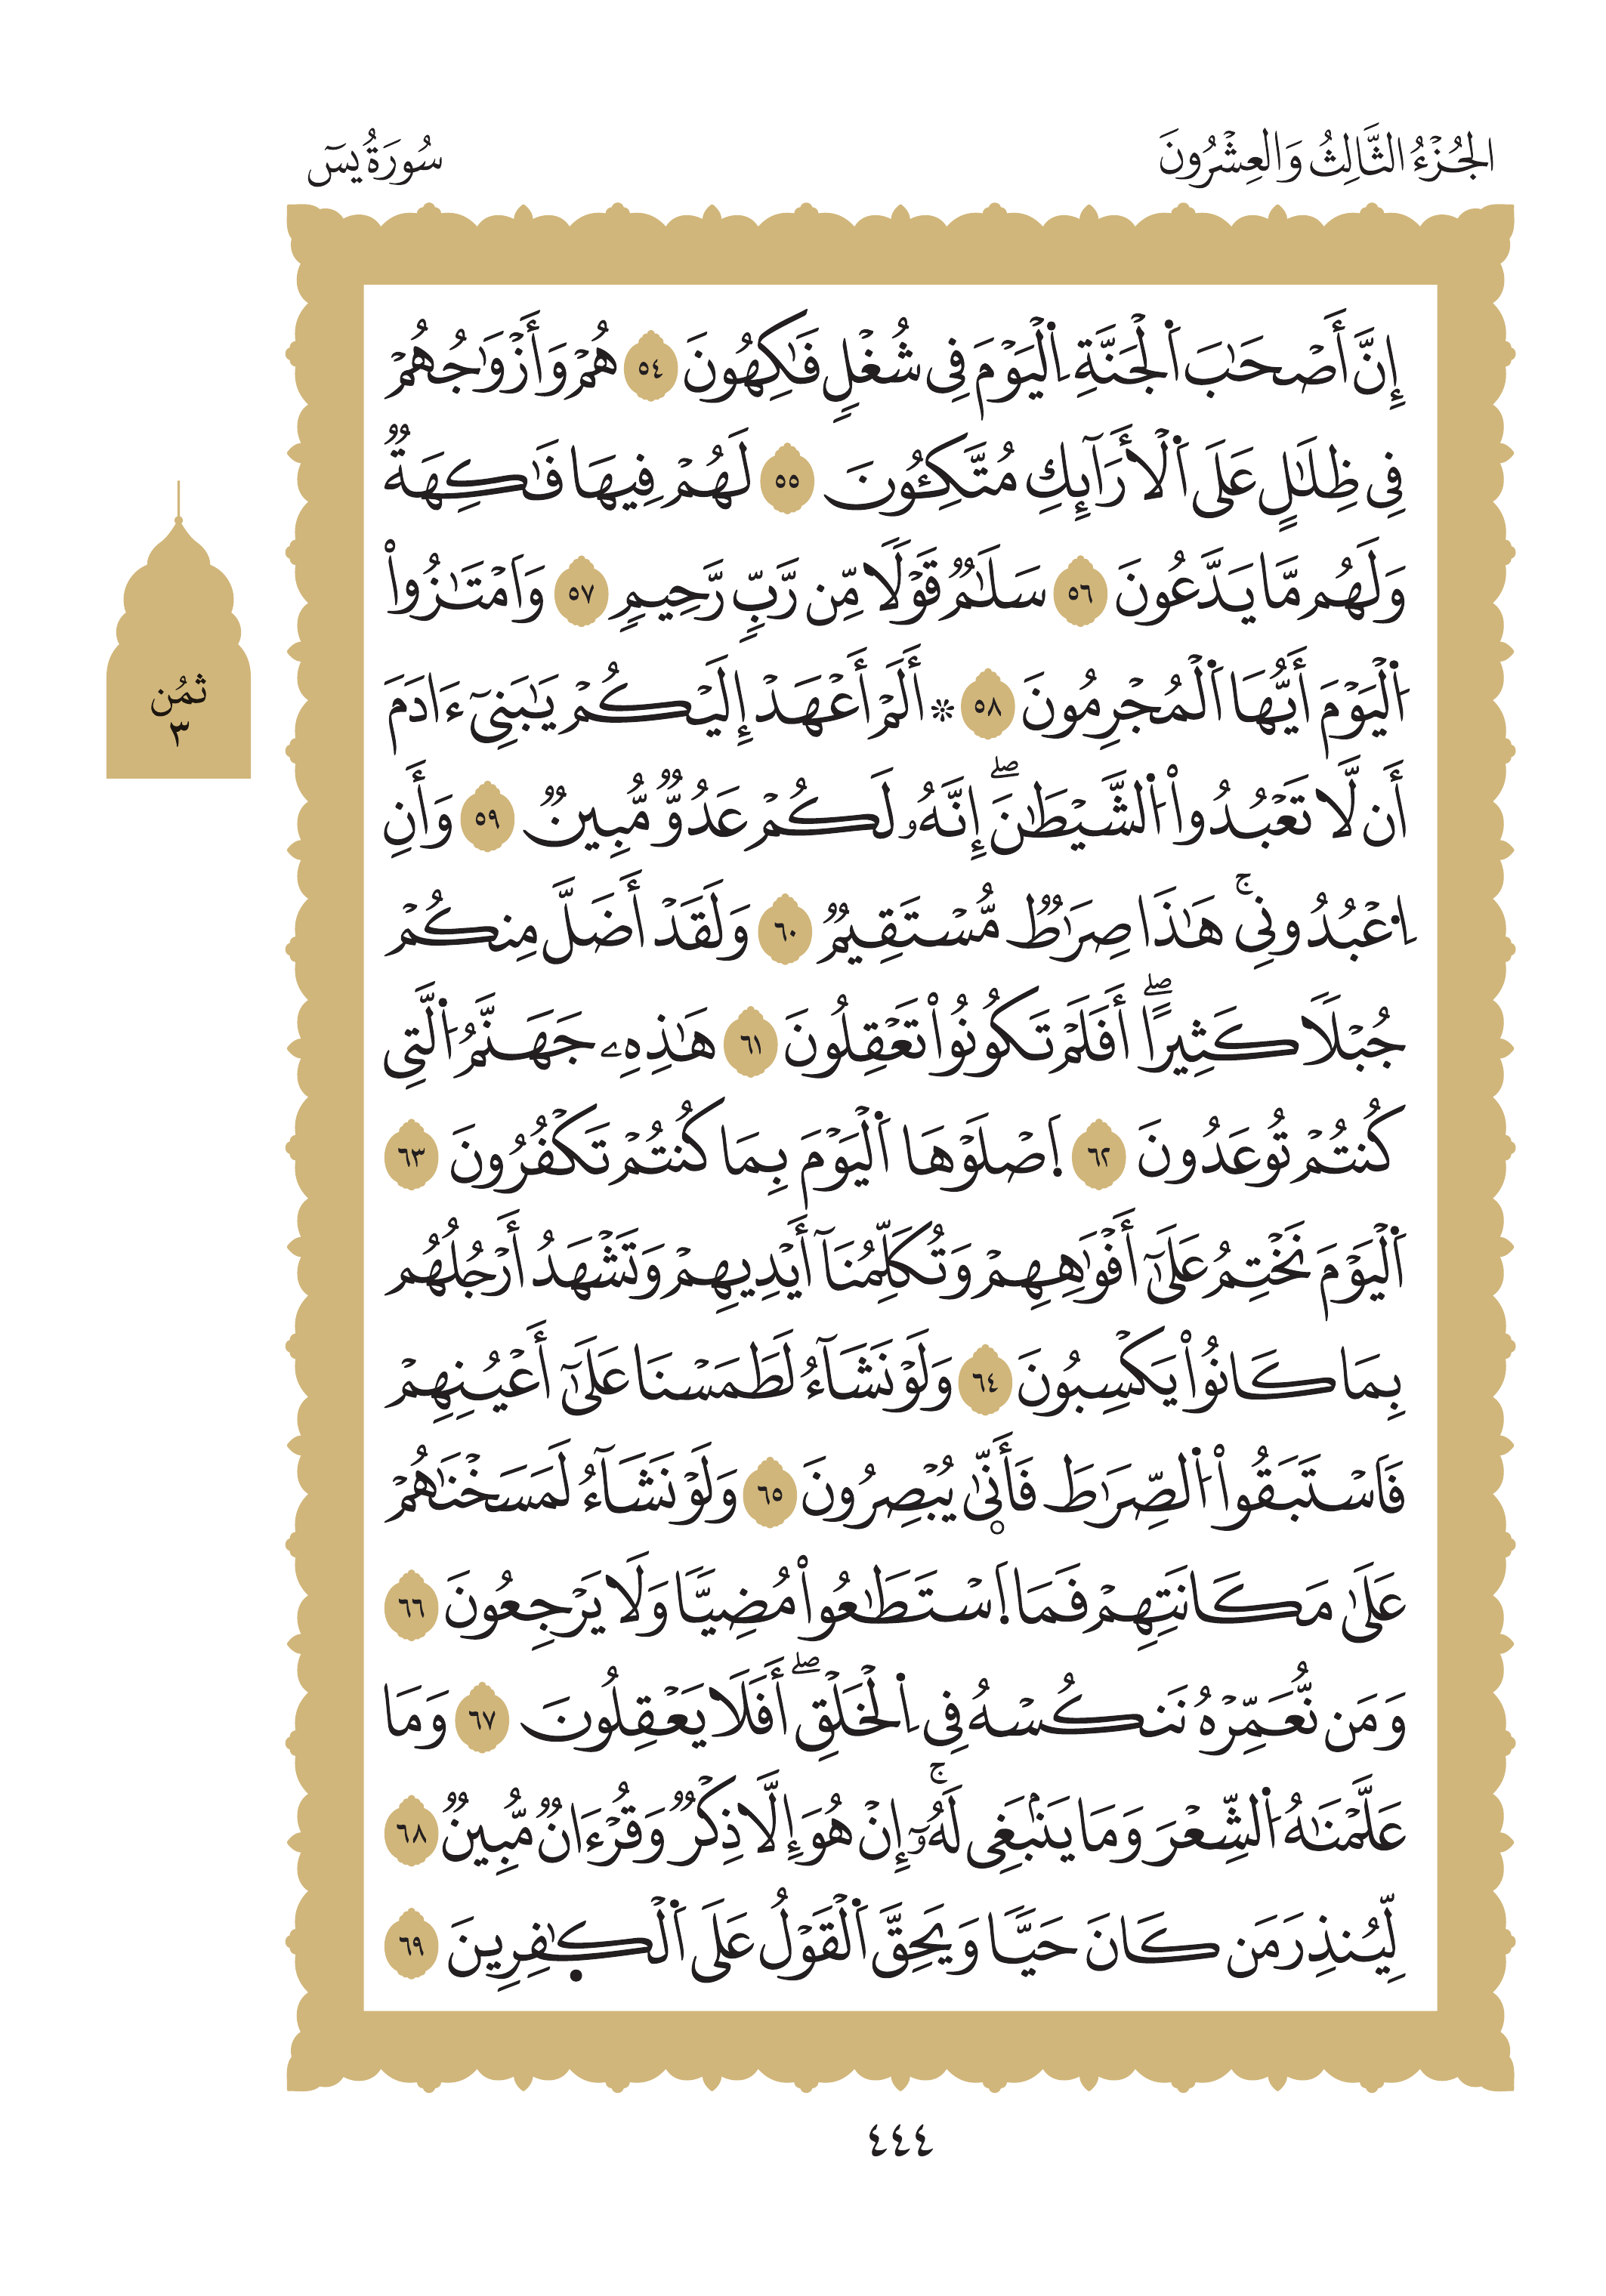 الجُزْءُ الثَّالِثُ وَالعِشْرُونَ
سُورَةُ يسٓ
إِنَّ أَصْحَٰبَ اَ۬لْجَنَّةِ اِ۬لْيَوْمَ فِى شُغْلٍ فَٰكِهُونَ ٥٤ هُمْ وَأَزْوَٰجُهُمْ
فِى ظِلَٰلٍ عَلَى اَ۬لْأَرَآئِكِ مُتَّكِـُٔونَ ٥٥ لَهُمْ فِيهَا فَٰكِهَةٌ
وَلَهُم مَّا يَدَّعُونَ ٥٦ سَلَٰمٌ قَوْلًا مِّن رَّبٍّ رَّحِيمٍ ٥٧ وَامْتَٰزُواْ
اُ۬لْيَوْمَ أَيُّهَا اَ۬لْمُجْرِمُونَ ٥٨ ۞ أَلَمْ أَعْهَدْ إِلَيْكُمْ يَٰبَنِىٓ ءَادَمَ
أَن لَّا تَعْبُدُواْ اُ۬لشَّيْطَٰنَۖ إِنَّهُۥ لَكُمْ عَدُوٌّ مُّبِينٌ ٥٩ وَأَنِ
اِ۟عْبُدُونِىۚ هَٰذَا صِرَٰطٌ مُّسْتَقِيمٌ ٦٠ وَلَقَدْ أَضَلَّ مِنكُمْ
جُبْلًا كَثِيرًاۖ أَفَلَمْ تَكُونُواْ تَعْقِلُونَ ٦١ هَٰذِهِۦ جَهَنَّمُ اُ۬لَّتِى
كُنتُمْ تُوعَدُونَ ٦٢ اَ۪صْلَوْهَا اَ۬لْيَوْمَ بِمَا كُنتُمْ تَكْفُرُونَ ٦٣
اَ۬لْيَوْمَ نَخْتِمُ عَلَىٰٓ أَفْوَٰهِهِمْ وَتُكَلِّمُنَآ أَيْدِيهِمْ وَتَشْهَدُ أَرْجُلُهُم
بِمَا كَانُواْ يَكْسِبُونَ ٦٤ وَلَوْ نَشَآءُ لَطَمَسْنَا عَلَىٰٓ أَعْيُنِهِمْ
فَاسْتَبَقُواْ اُ۬لصِّرَٰطَ فَأَنّ۪ىٰ يُبْصِرُونَ ٦٥ وَلَوْ نَشَآءُ لَمَسَخْنَٰهُمْ
عَلَىٰ مَكَانَتِهِمْ فَمَا اَ۪سْتَطَٰعُواْ مُضِيًّا وَلَا يَرْجِعُونَ ٦٦
وَمَن نُّعَمِّرْهُ نَنكُسْهُ فِى اِ۬لْخَلْقِۖ أَفَلَا يَعْقِلُونَ ٦٧ وَمَا
عَلَّمْنَٰهُ اُ۬لشِّعْرَ وَمَا يَنۢبَغِى لَهُۥٓۚ إِنْ هُوَ إِلَّا ذِكْرٌ وَقُرْءَانٌ مُّبِينٌ ٦٨
لِّيُنذِرَ مَن كَانَ حَيًّا وَيَحِقَّ اَ۬لْقَوْلُ عَلَى اَ۬لْكٰ۪فِرِينَ ٦٩
ثمُن
٣
٤٤٤